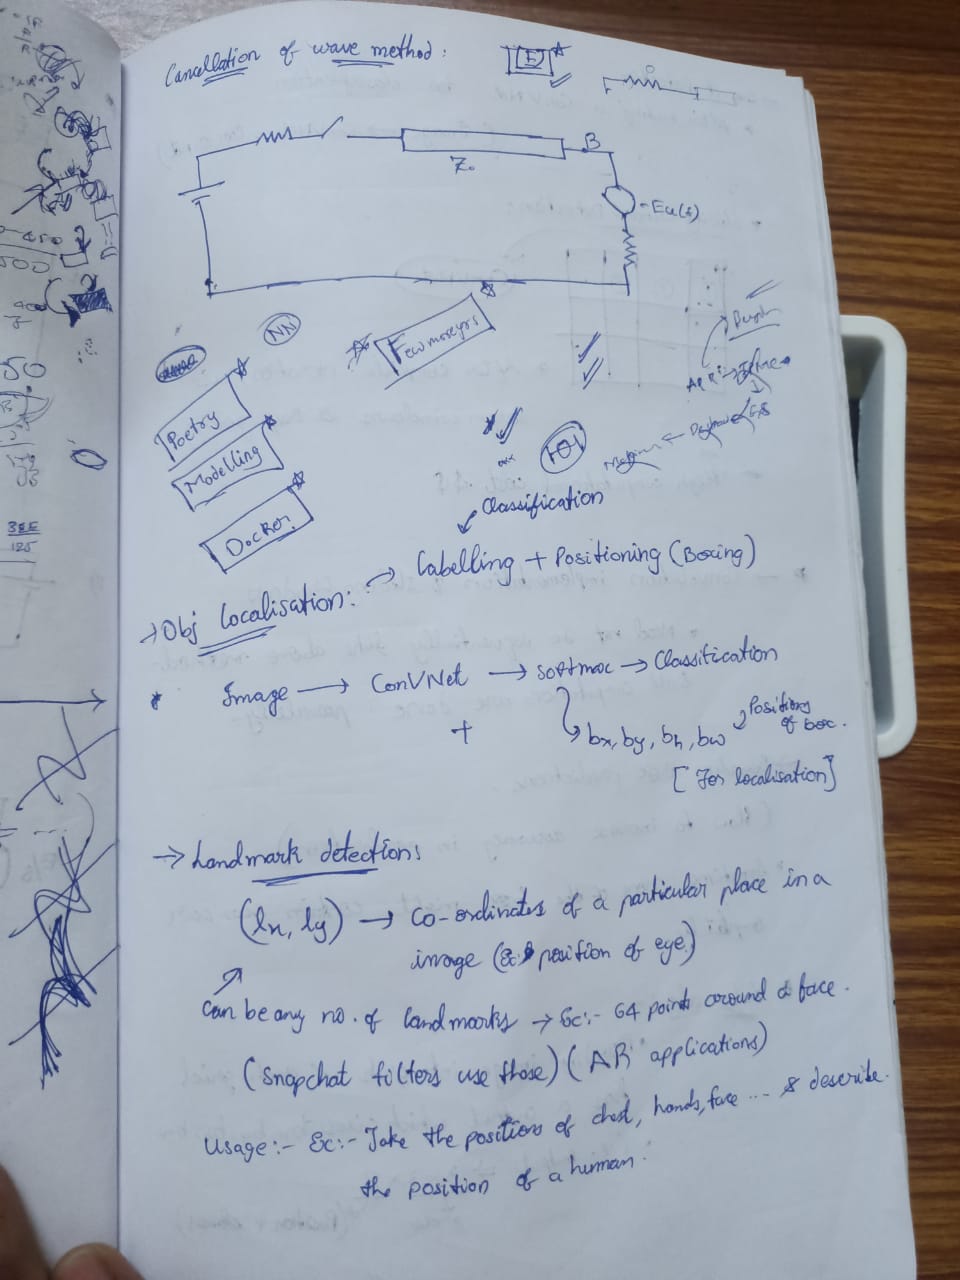 Cancellation of wave method:
E
B
Zo
-Eu(t)
NN
Few moseyrs
Poetry
Modelling
Docker
Classification
→ Obj localisation: → Labelling + Positioning (Boxing)
* Image → ConVNet → softmax → Classification
+
bx, by, bh, bw
Positions
of box.
[For localisation]
→ Landmark detections
(lx, ly) → Co-ordinates of a particular place in a
image (Ex: position of eye)
Can be any no. of landmarks → Ex:- 64 points around a face.
(Snapchat filters use those) (AR applications)
Usage:- Ex:- Take the positions of chest, hands, face ... & describe
the position of a human.
BEE
125